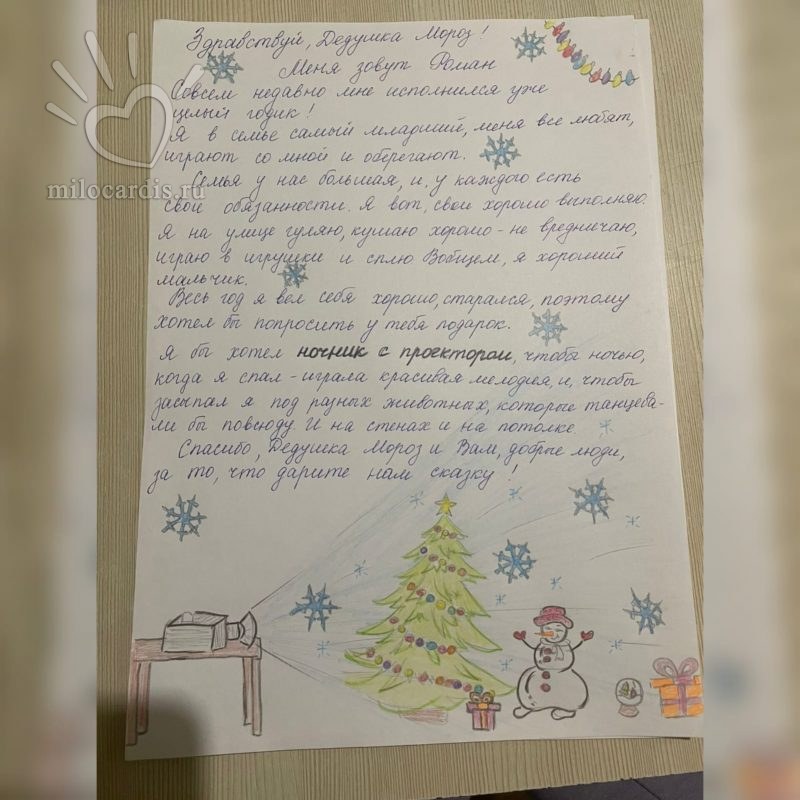 Здравствуй, Дедушка Мороз!
Меня зовут Роман
Совсем недавно мне исполнился уже
целый годик!
Я в семье самый младший, меня все любят,
играют со мной и оберегают.
milocardis.ru
Семья у нас большая, и у каждого есть
свои обязанности. Я вот, свои хорошо выполняю.
Я на улице гуляю, кушаю хорошо - не вредничаю,
играю в игрушки и сплю. Вобщем, я хороший
мальчик.
Весь год я вёл себя хорошо, старался, поэтому
хотел бы попросить у тебя подарок.
Я бы хотел ночник с проектором, чтобы ночью,
когда я спал - играла красивая мелодия, и, чтобы
засыпал я под разных животных, которые танцева-
ли бы повсюду. И на стенах и на потолке.
Спасибо, Дедушка Мороз и Вам, добрые люди,
за то, что дарите нам сказку!